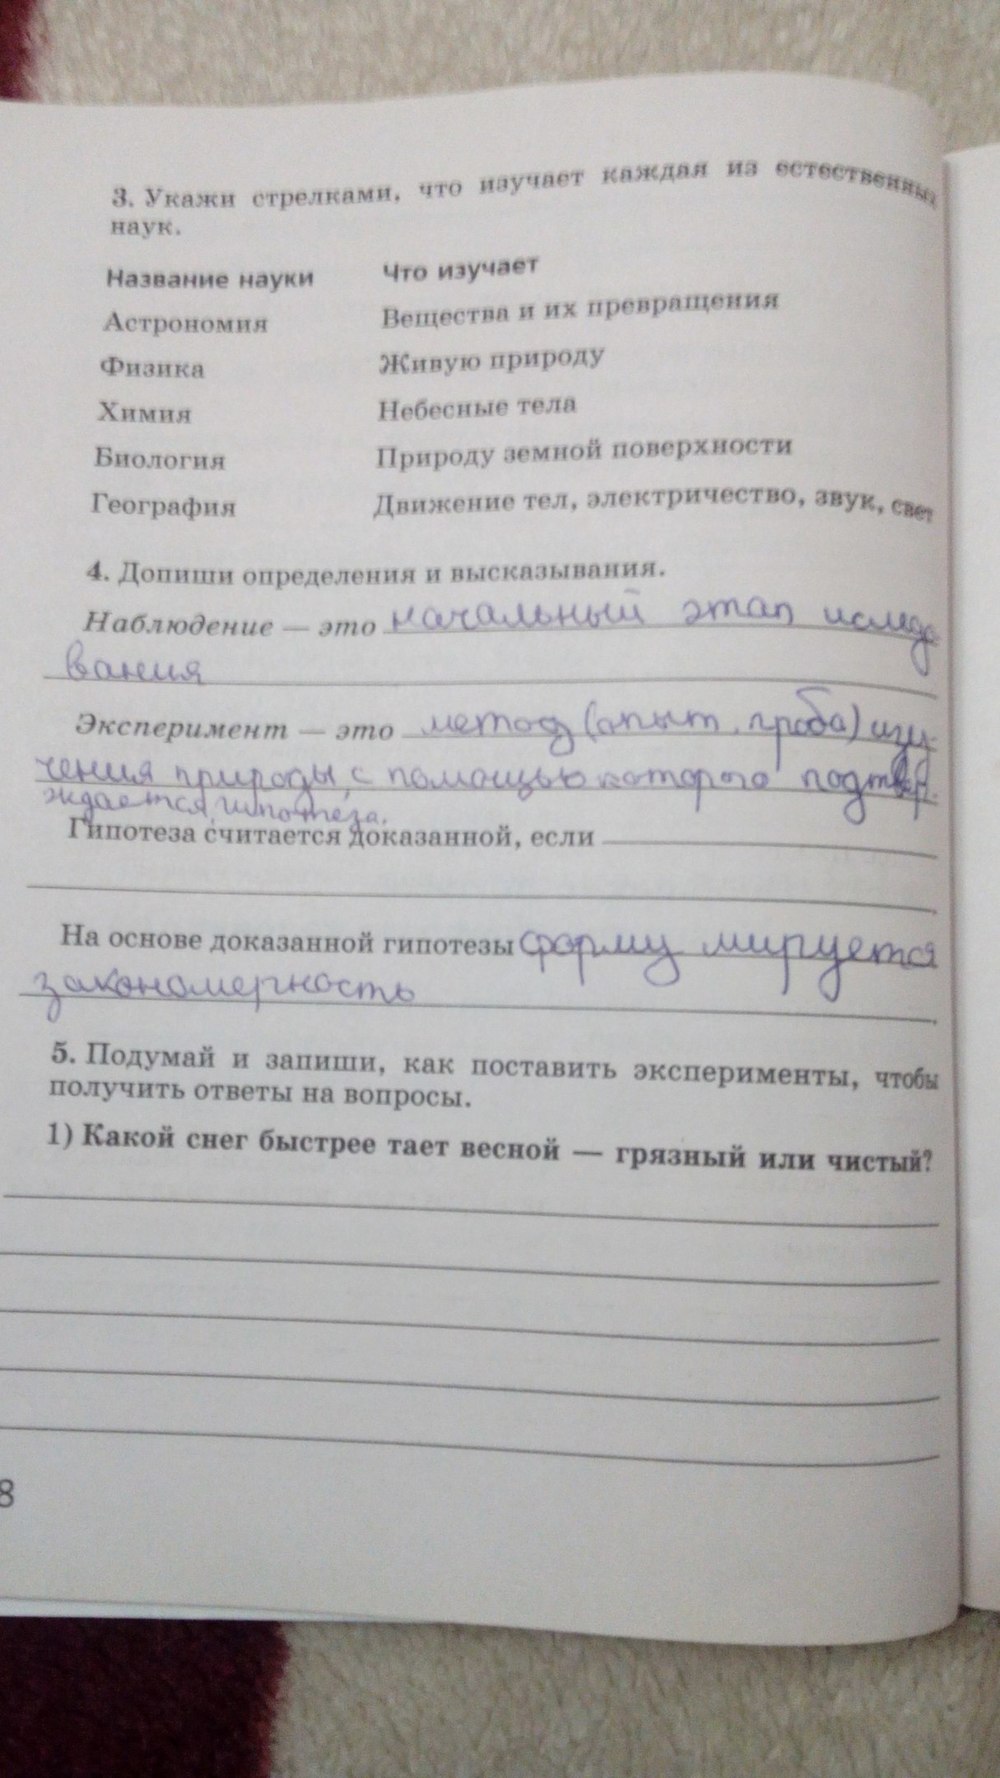 3. Укажи стрелками, что изучает каждая из естественных
наук.
Название науки Что изучает
Астрономия Вещества и их превращения
Физика Живую природу
Химия Небесные тела
Биология Природу земной поверхности
География Движение тел, электричество, звук, свет
4. Допиши определения и высказывания.
Наблюдение — это начальный этап исследо
вания
Эксперимент — это метод (опыт, проба) изу-
чения природы, с помощью которого подтвер-
ждается гипотеза.
Гипотеза считается доказанной, если
На основе доказанной гипотезы формулируется
закономерность
5. Подумай и запиши, как поставить эксперименты, чтобы
получить ответы на вопросы.
1) Какой снег быстрее тает весной — грязный или чистый?
8